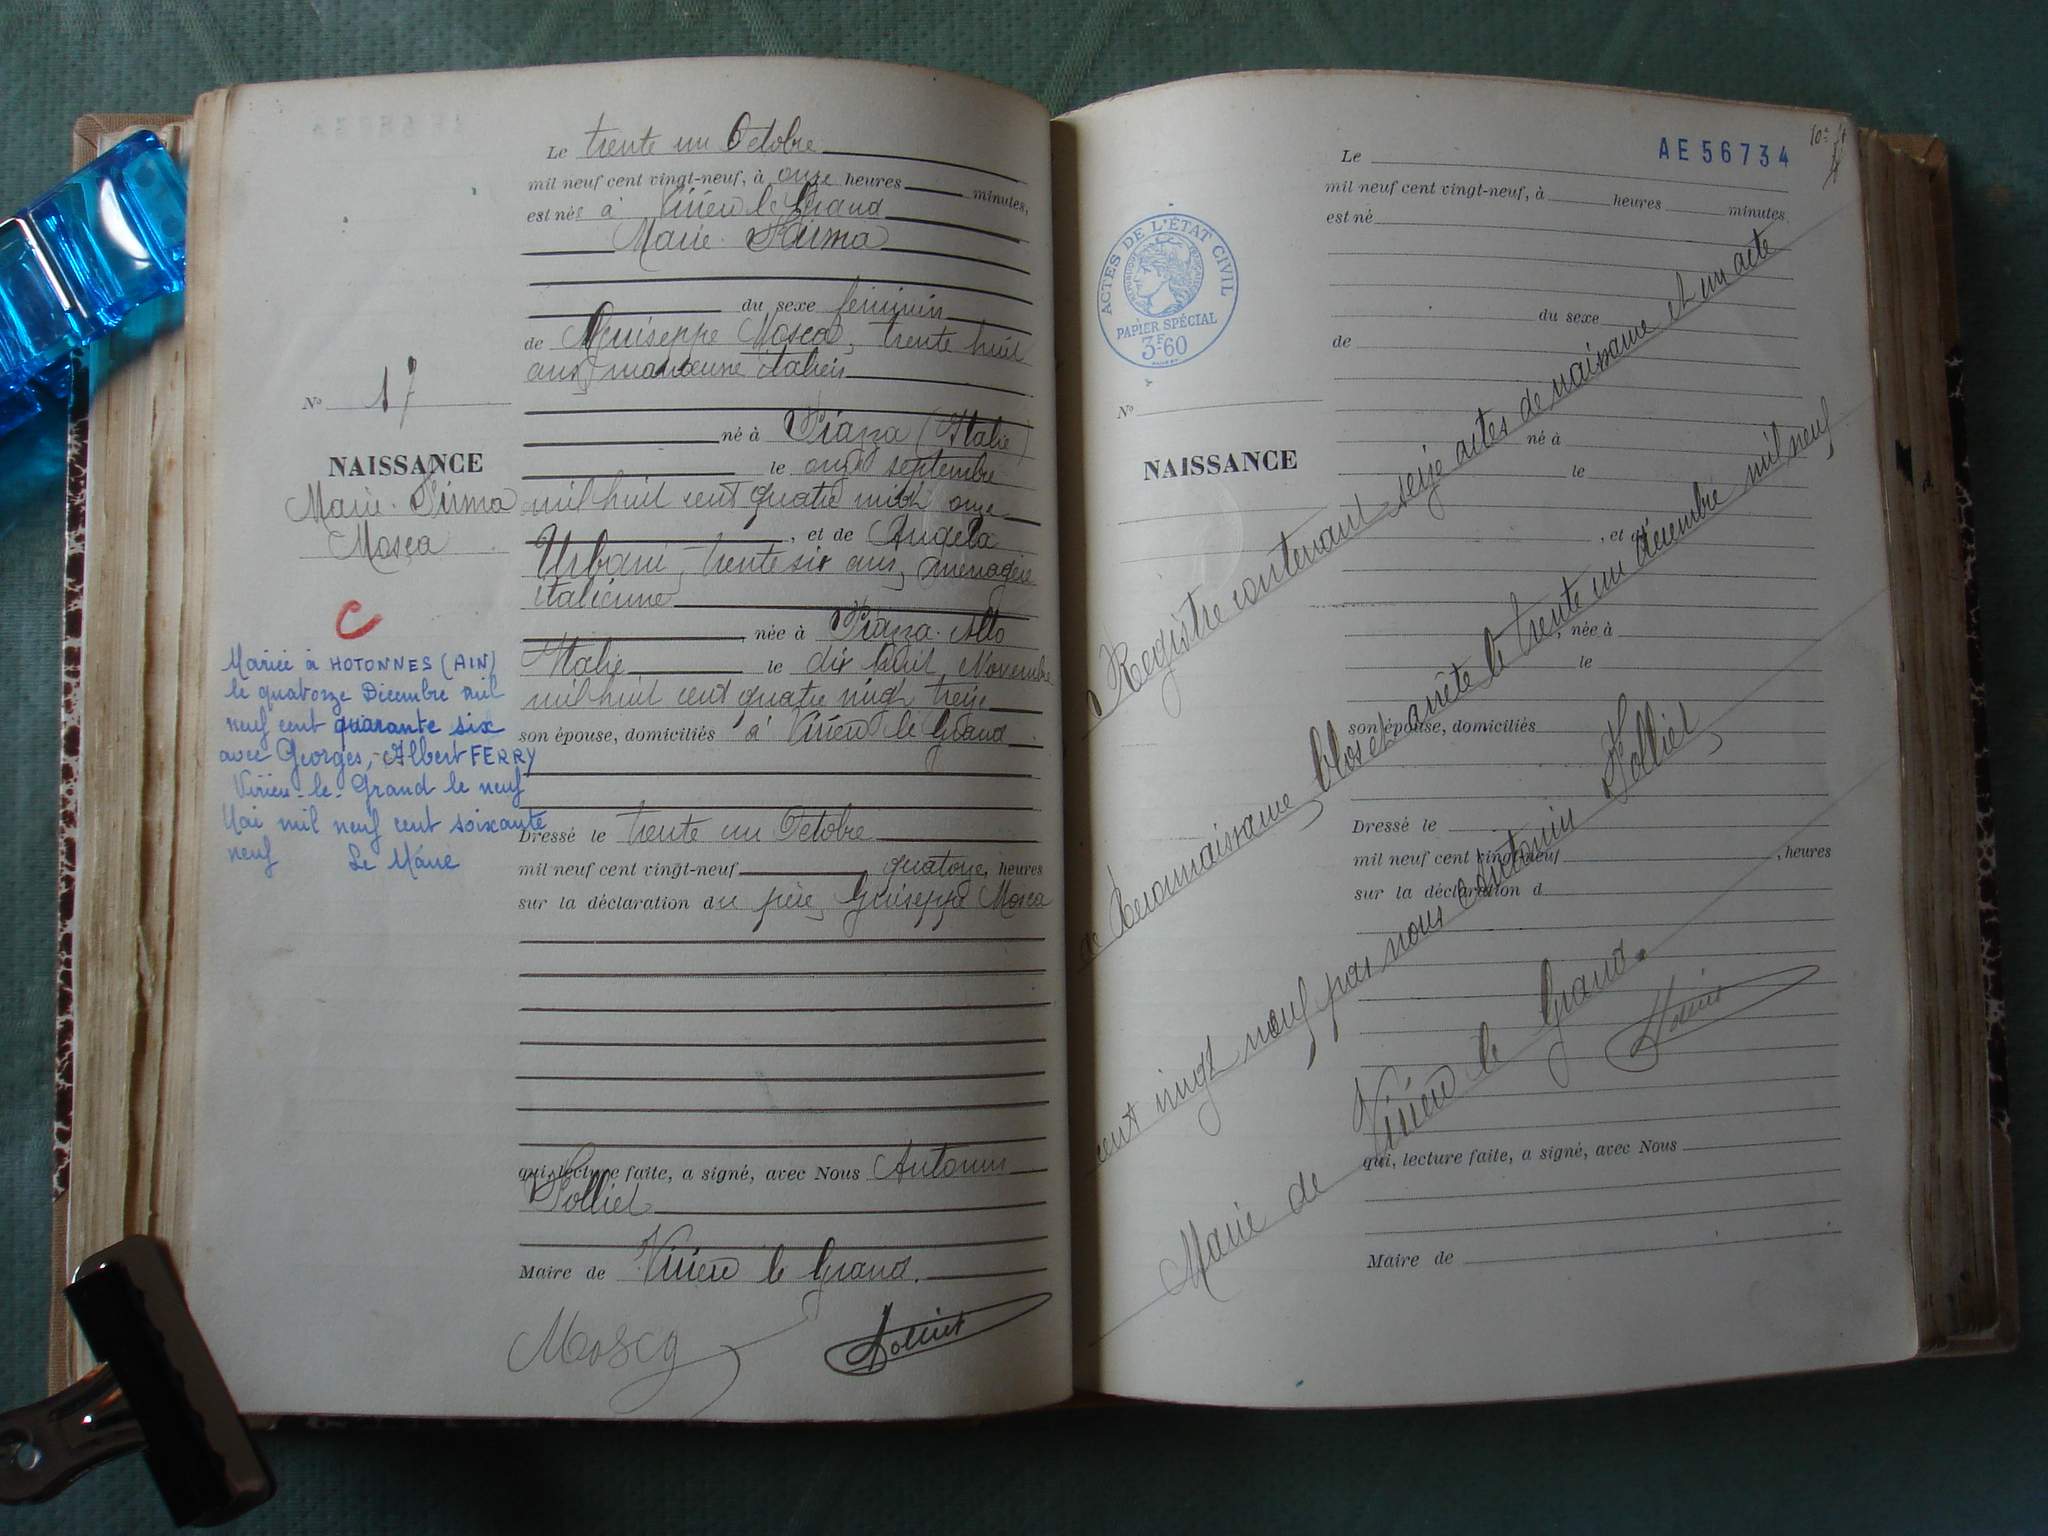 Le trente un Octobre
mil neuf cent vingt-neuf, à onze heures minutes,
est née à Virieu le Grand
Marie
du sexe féminin
de Guiseppe Mosca, trente huit
ans, manœuvre italien
né à Piazza (Italie)
le onze septembre
mil huit cent quatre vingt onze
, et de Angela
Urbani, trente six ans, ménagère
italienne
, née à Piazza Alto
Italie le dix huit Novembre
mil huit cent quatre vingt treize
son épouse, domiciliés à Virieu le Grand
Dressé le trente un Octobre
mil neuf cent vingt-neuf quatorze heures
sur la déclaration du père, Guiseppe Mosca
qui, lecture faite, a signé, avec Nous Antonin
Folliet
Maire de Virieu le Grand.
Mosca Folliet
No 17
NAISSANCE
Marie
Mosca
C
Mariée à HOTONNES (AIN)
le quatorze Décembre mil
neuf cent quarante six
avec Georges, Albert FERRY
Virieu-le-Grand le neuf
Mai mil neuf cent soixante
neuf Le Maire
AE 56734
ACTES DE L'ÉTAT CIVIL
RÉPUBLIQUE FRANÇAISE
PAPIER SPÉCIAL
3F60
Le
mil neuf cent vingt-neuf, à heures minutes
est né
du sexe
de
No
NAISSANCE
né à
le
, et d
, née à
le
son épouse, domiciliés
Dressé le
mil neuf cent vingt-neuf , heures
sur la déclaration d
qui, lecture faite, a signé, avec Nous
Maire de
Registre contenant seize actes de naissance et un acte
de Reconnaissance, clos et arrêté le trente un décembre mil neuf
cent vingt neuf par nous Antonin Folliet,
Maire de Virieu le Grand.
Folliet